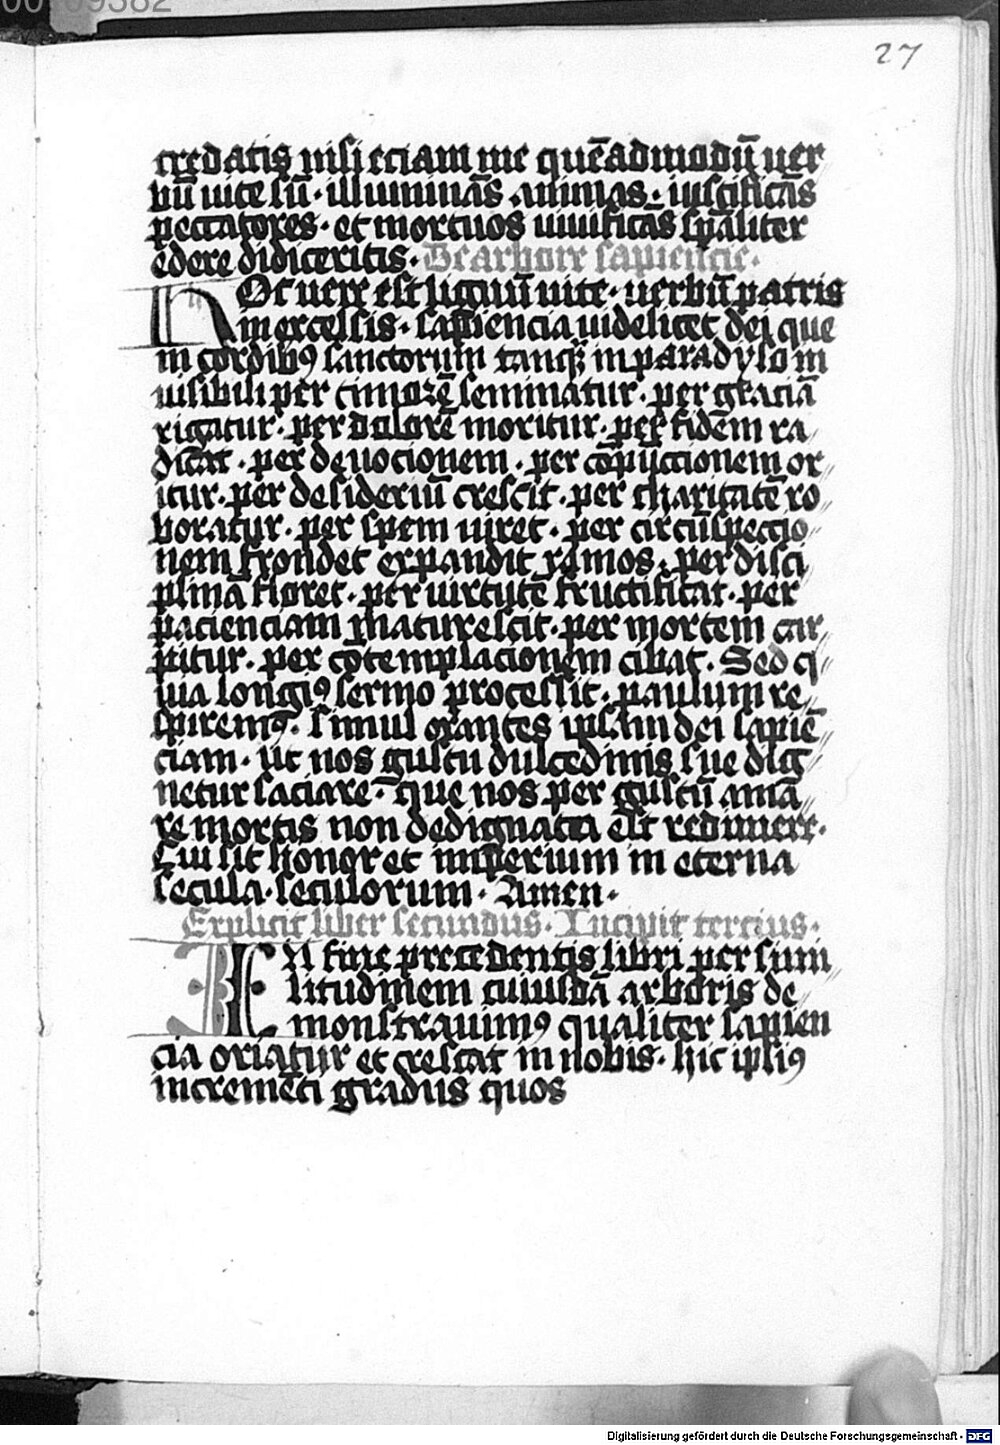 27
credatis nisi eciam me quēadmodū uer
bū uite sū · illuminās animas · iustificās
peccatores · et mortuos uiuificās sp̄aliter
edere didiceritis · De arbore sapiencie ·
Hoc uere est lignū uite · uerbū patris
in excelsis · sapiencia uidelicet dei que
in cordibꝰ sanctorum tanqꝫ in paradyso in
uisibili per timorē seminatur · per graciā
rigatur · per dolorē moritur · per fidem ra
dicat · per deuocionem · per cōpūctionem or
itur · per desideriū crescit · per charitatē ro
boratur · per spem uiret · per circūspectio
nem frondet expandit ramos · per disci
plinā floret · per uirtutē fructificat · per
pacienciam maturescit · per mortem car
pitur · per cōtemplacionem cibat · Sed q
uia longiꝰ sermo processit · paulum re
spiremꝰ · simul orantes ipsam dei sapiē
ciam · ut nos gustu dulcedinis sue dig
netur saciare · que nos per gustū amā
re mortis non dedignata est redimere ·
Cui sit honor et imperium in eterna
secula · seculorum · Amen ·
Explicit liber secundus · Incipit tercius ·
IN fine precedentis libri per simi
litudinem cuiusdā arboris de
monstrauimꝰ qualiter sapien
cia oriatur et crescat in nobis · hic ipsiꝰ
incremēti gradus quos
Digitalisierung gefördert durch die Deutsche Forschungsgemeinschaft - DFG